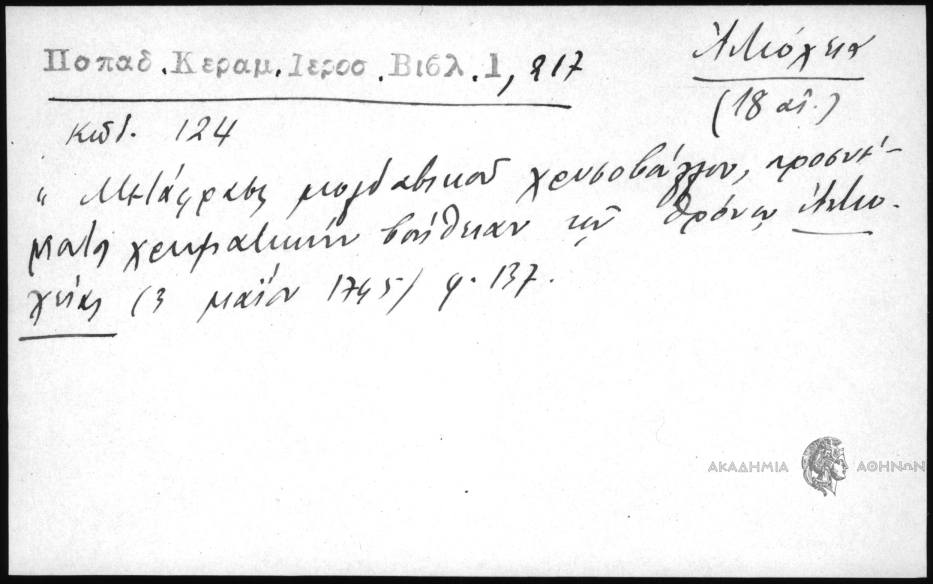 Παπαδ. Κεραμ. Ιεροσ. Βιβλ. 1, 217
Ἀντιόχεια
(18 αἰ.)
κωδ. 124
" Μετάφρασις μολδαβικοῦ χρυσοβούλλου,
χρηματικὴν βοήθειαν τῷ θρόνῳ Ἀντιο-
χείας (3 μαΐου 1745) φ. 137.
ΑΚΑΔΗΜΙΑ ΑΘΗΝΩΝ